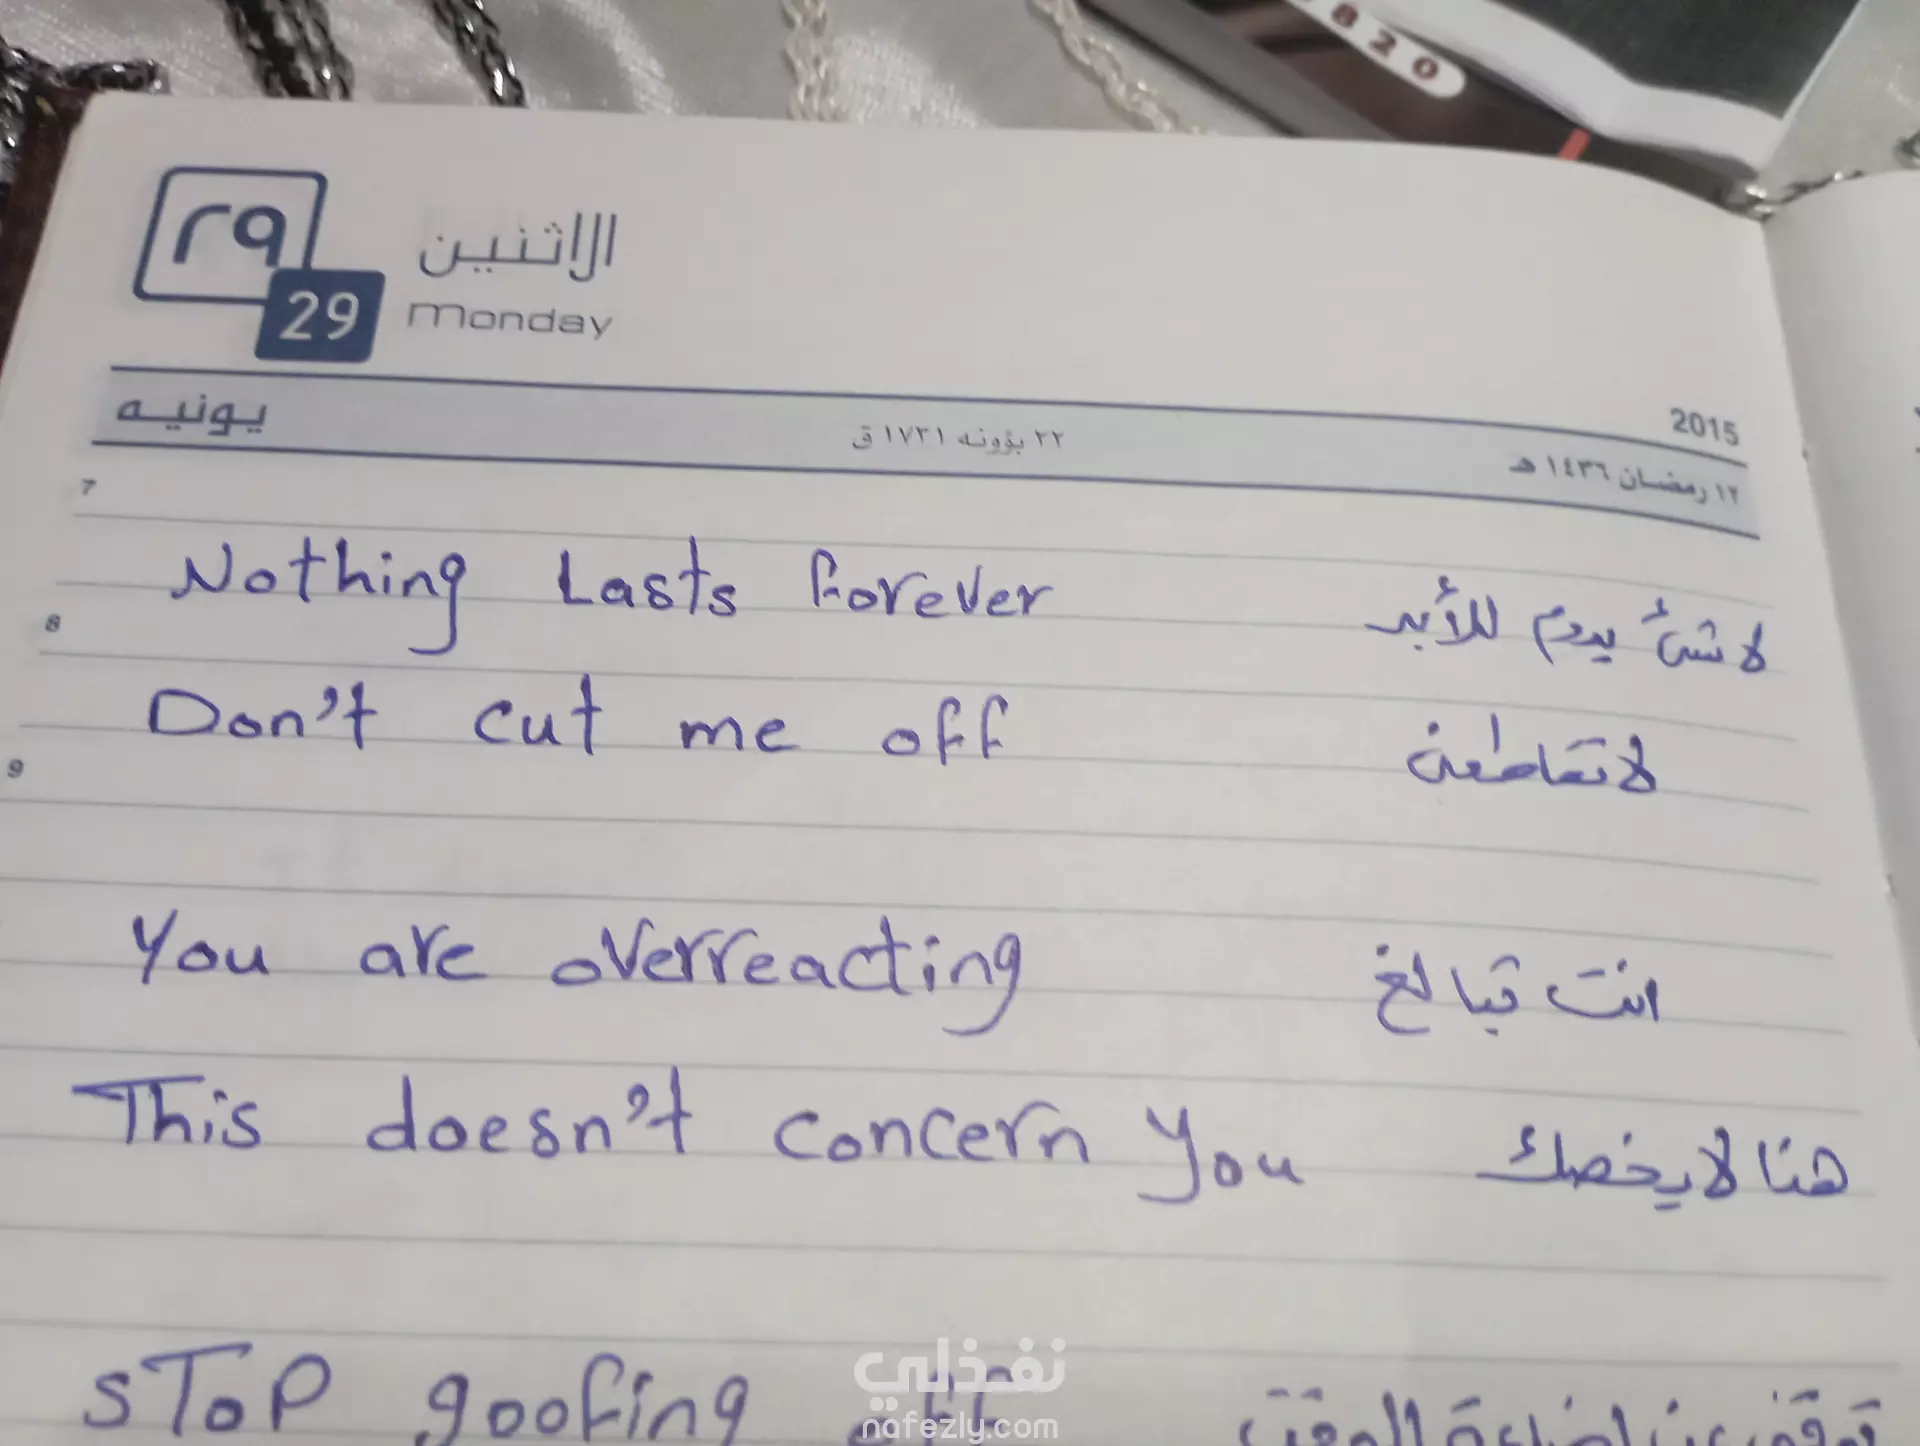 820
٢٩
29
الاثنين
Monday
يونيه
٢٢ بؤونه ١٧٣١ ق
2015
١٢ رمضان ١٤٣٦ هـ
7
Nothing Lasts forever لا شئ يدوم للأبد
8
Don't cut me off لا تقاطعنى
9
You are overreacting انت تبالغ
This doesn't concern you هنا لا يخصك
STOP goofing off توقف عن اضاعة الوقت
نفذلي
nafezly.com